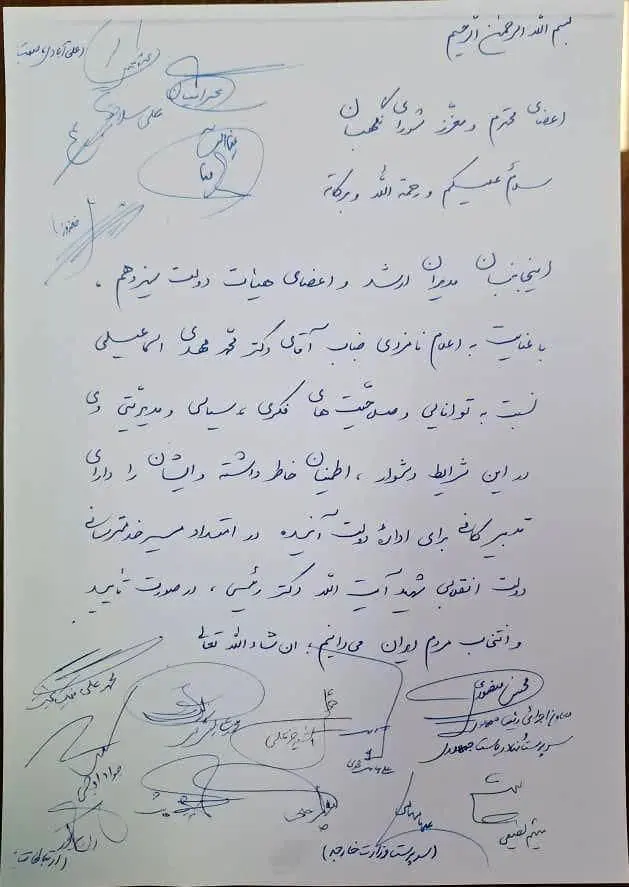 بسم الله الرحمن الرحیم
اعضای محترم و معزّز شورای نگهبان
سلامٌ علیکم و رحمة الله و برکاته
اینجانبان مدیران ارشد و اعضای هیأت دولت سیزدهم،
با عنایت به اعلام نامزدی جناب آقای دکتر محمّد مهدی اسماعیلی
نسبت به توانایی و صلاحیّت‌های فکری، سیاسی و مدیریّتی وی
در این شرایط دشوار، اطمینان خاطر داشته و ایشان را دارای
تدبیر کافی برای ادارهٔ دولت آینده در امتداد مسیر خدمترسانی
دولت انقلابی شهید آیت الله دکتر رئیسی، در صورت تأیید
و انتخاب مردم ایران می‌دانیم؛ ان شاء الله تعالی
محسن منصوری
معاون اجرائی رئیس جمهور
سرپرست نهاد ریاست جمهوری
میثم لطیفی
(سرپرست وزارت خارجه)
جواد اوجی
(ارتباطات)